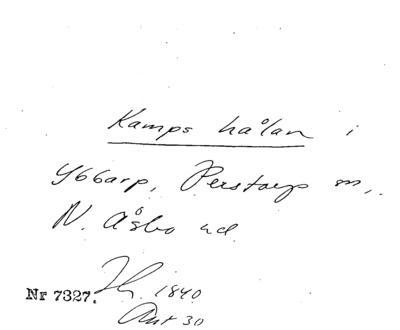 Kamps hålan i
Ybbarp, Perstorp sn,
N. Åsbo hd.
Nr 7327. 1840
Ant 30